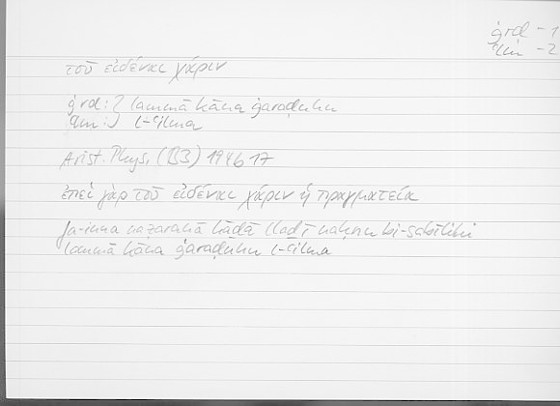 ġrḍ – 1
ʿlm – 2
τοῦ εἰδέναι χάριν
ġrḍ : } lammā kāna ġaraḍuhu
ʿlm : } l-ʿilma
Arist. Phys. (B3) 194b17
ἐπεὶ γὰρ τοῦ εἰδέναι χάριν ἡ πραγματεία
fa-inna naẓaranā hāḏā llaḏī naḥnu bi-sabīlihi
lammā kāna ġaraḍuhu l-ʿilma